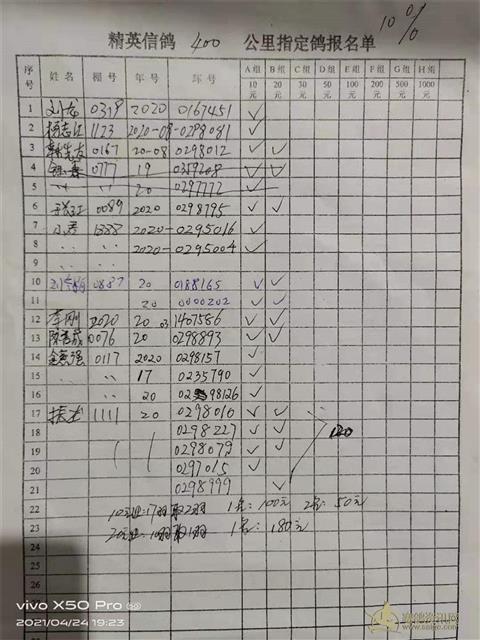 10%
精英信鸽 400 公里指定鸽报名单
序号 姓名 棚号 年号 环号 A组10元 B组20元 C组30元 D组50元 E组100元 F组200元 G组500元 H组1000元
1 0319 2020 0167451 ✓
2 杨志江 1123 2020-08-0298081 ✓
3 0167 20-08 0298012 ✓ ✓
4 0777 19 0359208 ✓ ✓
5 〃 〃 20 0297772 ✓
6 0089 2020 0298795 ✓ ✓
7 1888 2020-0295016 ✓
8 〃 〃 2020-0295004 ✓
9 〃 〃
10 0887 20 0188165 ✓ ✓
11 20 0000202 ✓ ✓
12 李刚 2020 20 03 1407586 ✓ ✓
13 0076 20 0298893 ✓ ✓
14 0117 2020 0298157 ✓
15 〃 〃 17 0235790 ✓
16 20 0298126 ✓
17 1111 20 0298010 ✓ ✓
18 0298227 ✓ ✓ 120
19 0298079 ✓ ✓
20 0297015 ✓
21 0298999 ✓
22 10元组:17羽取2羽 1名:100元 2名:50元
23 20元组:10羽取1羽 1名:180元
24
25
26
27
28
vivo X50 Pro
2021/04/24 19:23